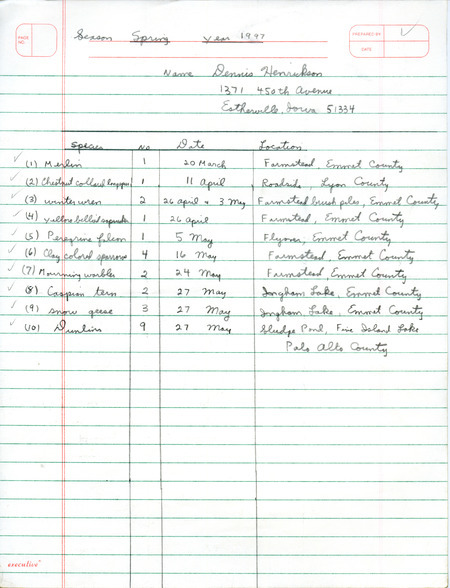 PAGE NO.
Season Spring Year 1997
PREPARED BY
DATE
Name Dennis Henrickson
1371 450th Avenue
Estherville, Iowa 51334
Species No Date Location
(1) Merlin 1 20 March Farmstead, Emmet County
(2) Chestnut collared longspur 1 11 April Roadside, Lyon County
(3) winter wren 2 26 april & 3 May Farmstead brush piles, Emmet County
(4) yellow bellied sapsucker 1 26 april Farmstead, Emmet County
(5) Peregrine falcon 1 5 May Flyover, Emmet County
(6) Clay colored sparrow 4 16 May Farmstead, Emmet County
(7) Mourning warbler 2 24 May Farmstead, Emmet County
(8) Caspian tern 2 27 May Ingham Lake, Emmet County
(9) snow geese 3 27 May Ingham Lake, Emmet County
(10) Dunlins 9 27 May Sludge Pond, Five Island Lake
Palo Alto County
executive